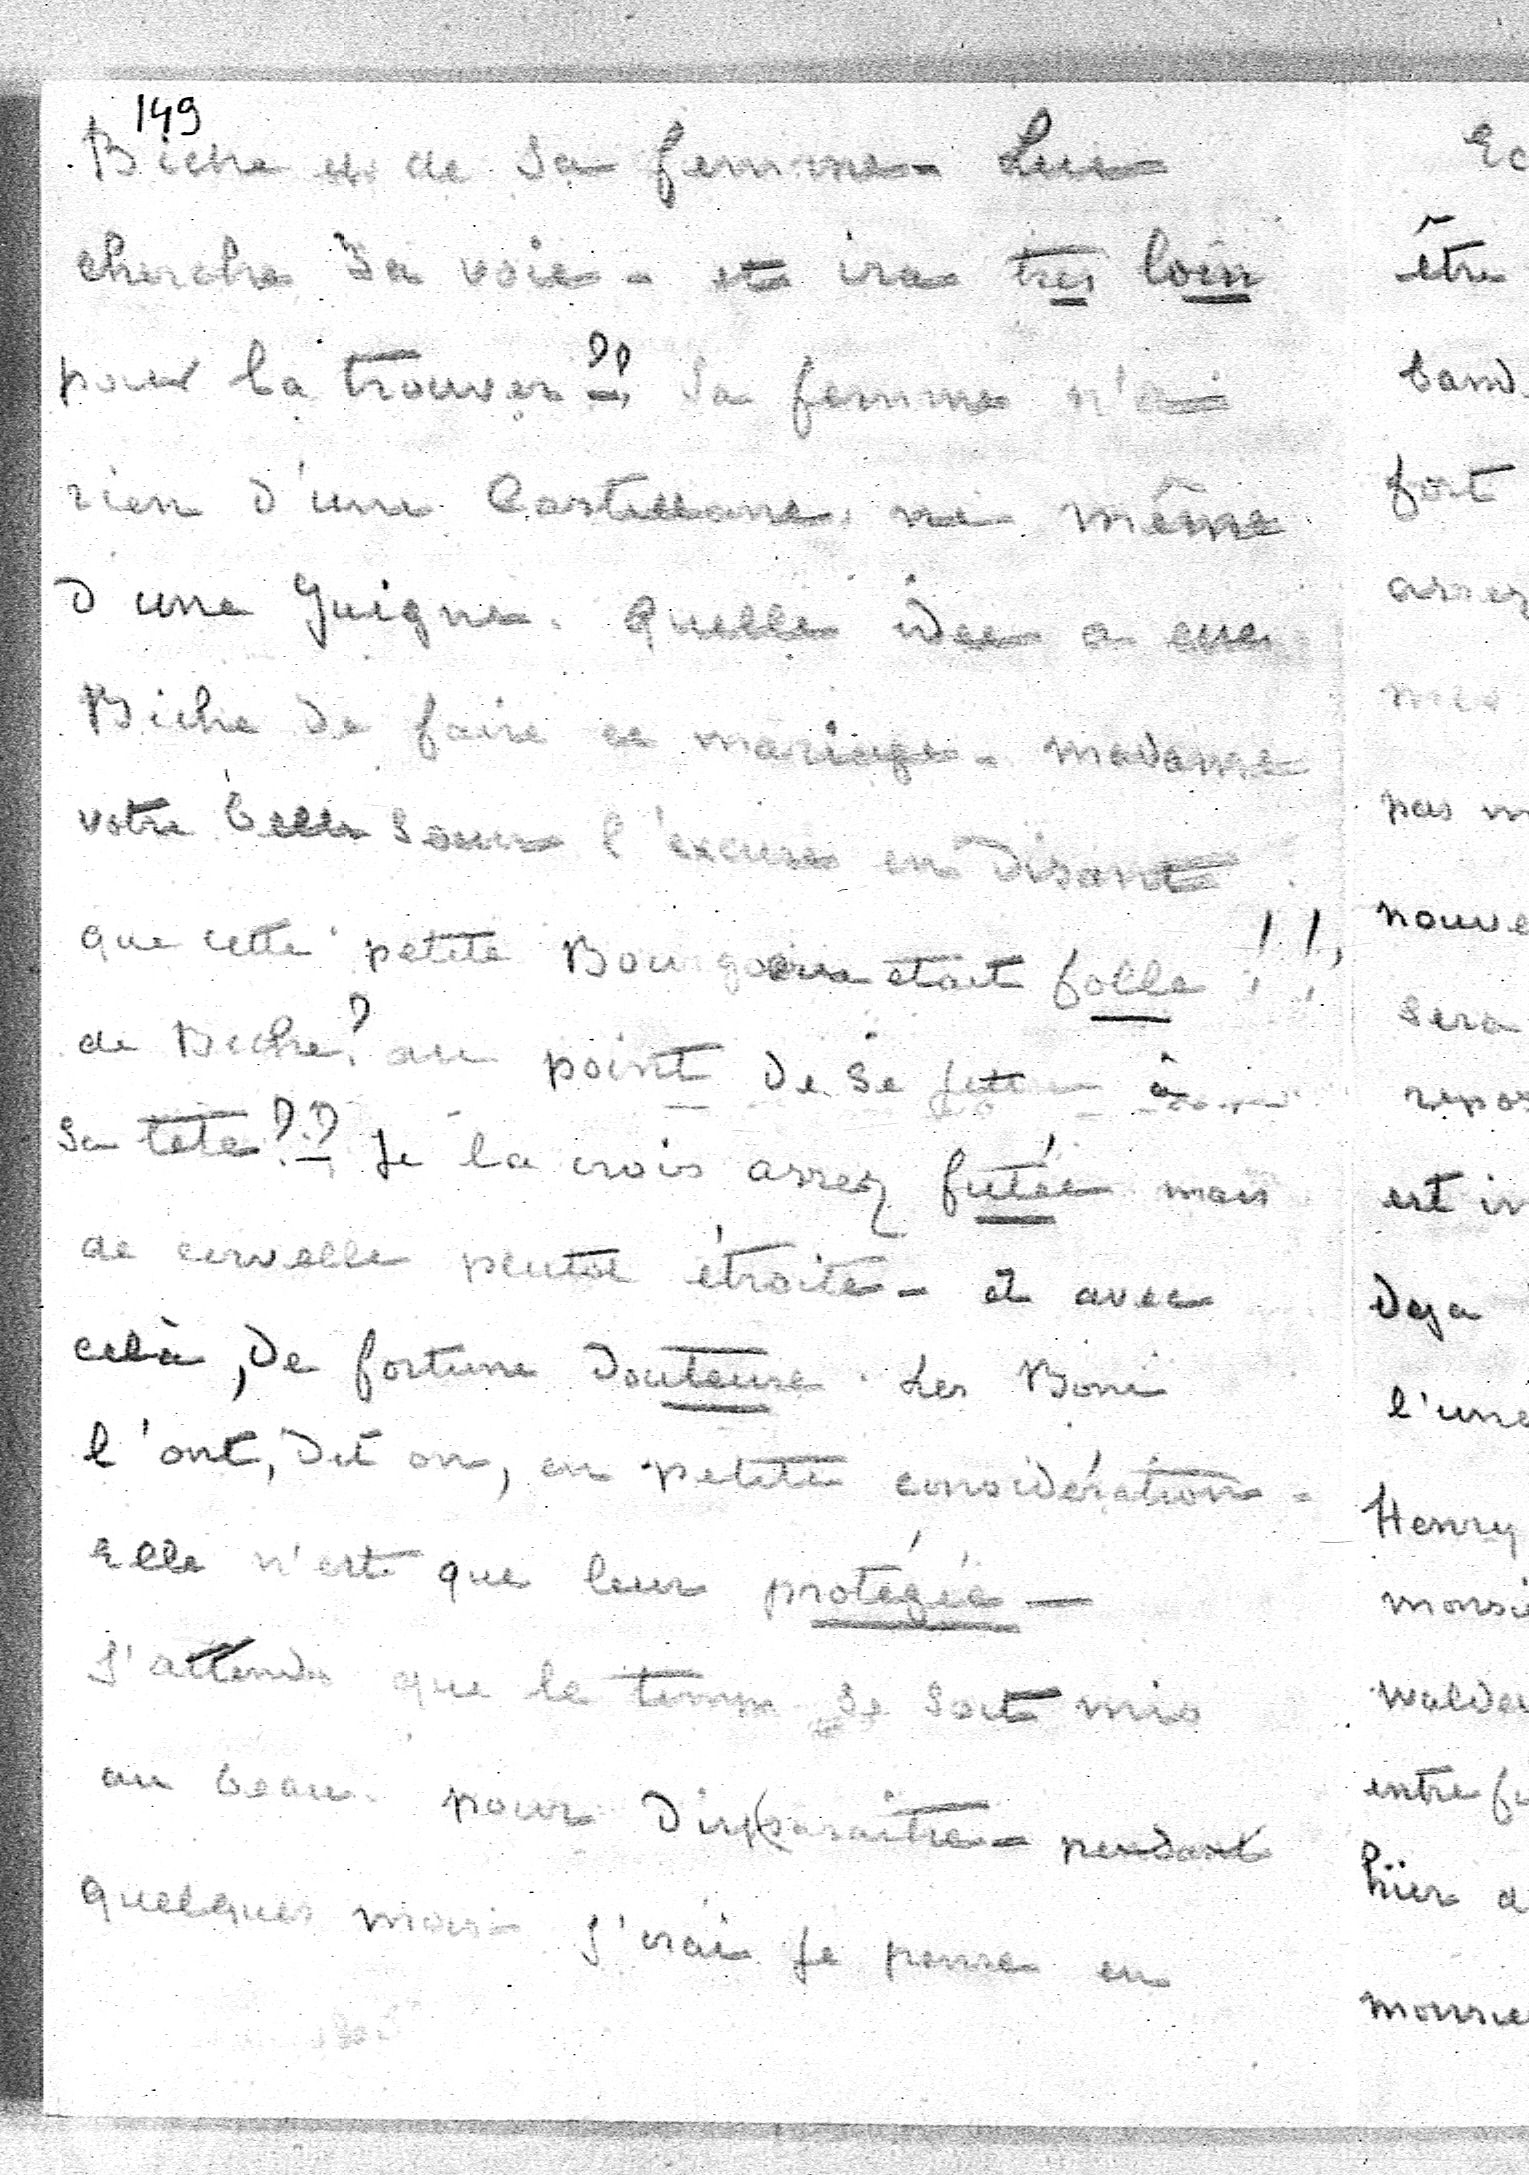 149
Biche et de sa femme - Lui
cherche sa voie - et ira très loin
pour la trouver ?? sa femme n'a
rien d'une Castellane, ni même
d'une Guigne. Quelle idee a eue
Biche de faire ce mariage - madame
votre belle soeur l'excuse en disant
que cette petite etait folle !!
de Biche ? au point de se jetter à
sa tête ?? Je la crois assez futée mais
de cervelle plutôt étroite - et avec
celà, de fortune douteuse. Les Boni
l'ont, dit on, en petite considération -
Elle n'est que leur protégée -
J'attends que le temps se soit mis
au beau pour disparaître - pendant
quelques mois J'irai je pense en
Ec
être
band
fort
assez
mes
pas m
nouve
sera
repos
est in
deja
l'une
Henry
monsie
walde
entre fu
hier a
monsie